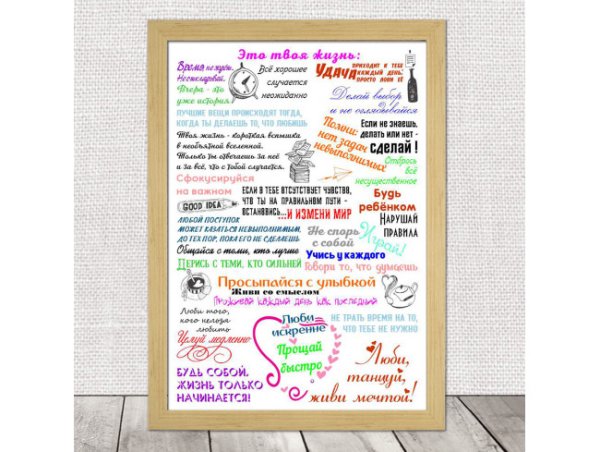 Это твоя жизнь:
Время не ждёт.
Не откладывай.
Вчера - это
уже история
Всё хорошее
случается
неожиданно
Удача приходит к тебе
каждый день,
просто лови её
Делай выбор
и не оглядывайся
ЛУЧШИЕ ВЕЩИ ПРОИСХОДЯТ ТОГДА,
КОГДА ТЫ ДЕЛАЕШЬ ТО, ЧТО ЛЮБИШЬ
Помни:
нет задач
невыполнимых
Если не знаешь,
делать или нет -
сделай!
Твоя жизнь - короткая вспышка
в необъятной вселенной.
Только ты отвечаешь за неё
и за всё, что с тобой случается.
Отбрось
всё
несущественное
Сфокусируйся
на важном
GOOD IDEA
ЕСЛИ В ТЕБЕ ОТСУТСТВУЕТ ЧУВСТВО,
ЧТО ТЫ НА ПРАВИЛЬНОМ ПУТИ -
ОСТАНОВИСЬ...И ИЗМЕНИ МИР
Будь
ребёнком
Нарушай
правила
ЛЮБОЙ ПОСТУПОК
МОЖЕТ КАЗАТЬСЯ НЕВЫПОЛНИМЫМ,
ДО ТЕХ ПОР, ПОКА ЕГО НЕ СДЕЛАЕШЬ
Не спорь
с собой
Играй!
Общайся с теми, кто лучше
Учись у каждого
Дерись с теми, кто сильней
Говори то, что думаешь
Просыпайся с улыбкой
Живи со смыслом
Проживай каждый день как последний
Люби того,
кого нельзя
любить
Целуй медленно
Люби
искренне
Прощай
быстро
НЕ ТРАТЬ ВРЕМЯ НА ТО,
ЧТО ТЕБЕ НЕ НУЖНО
БУДЬ СОБОЙ,
ЖИЗНЬ ТОЛЬКО
НАЧИНАЕТСЯ!
Люби,
танцуй,
живи мечтой!